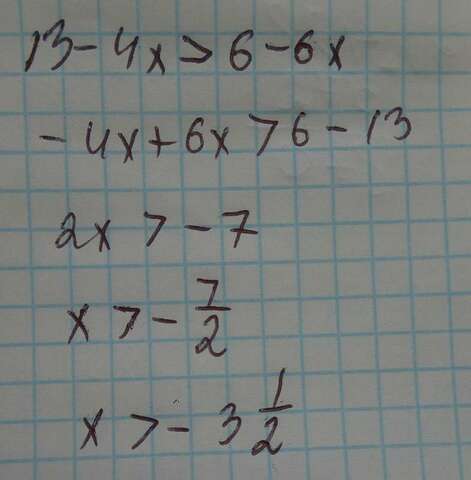 13 - 4x > 6 - 6x
- 4x + 6x > 6 - 13
2x > - 7
x > - 7/2
x > - 3 1/2